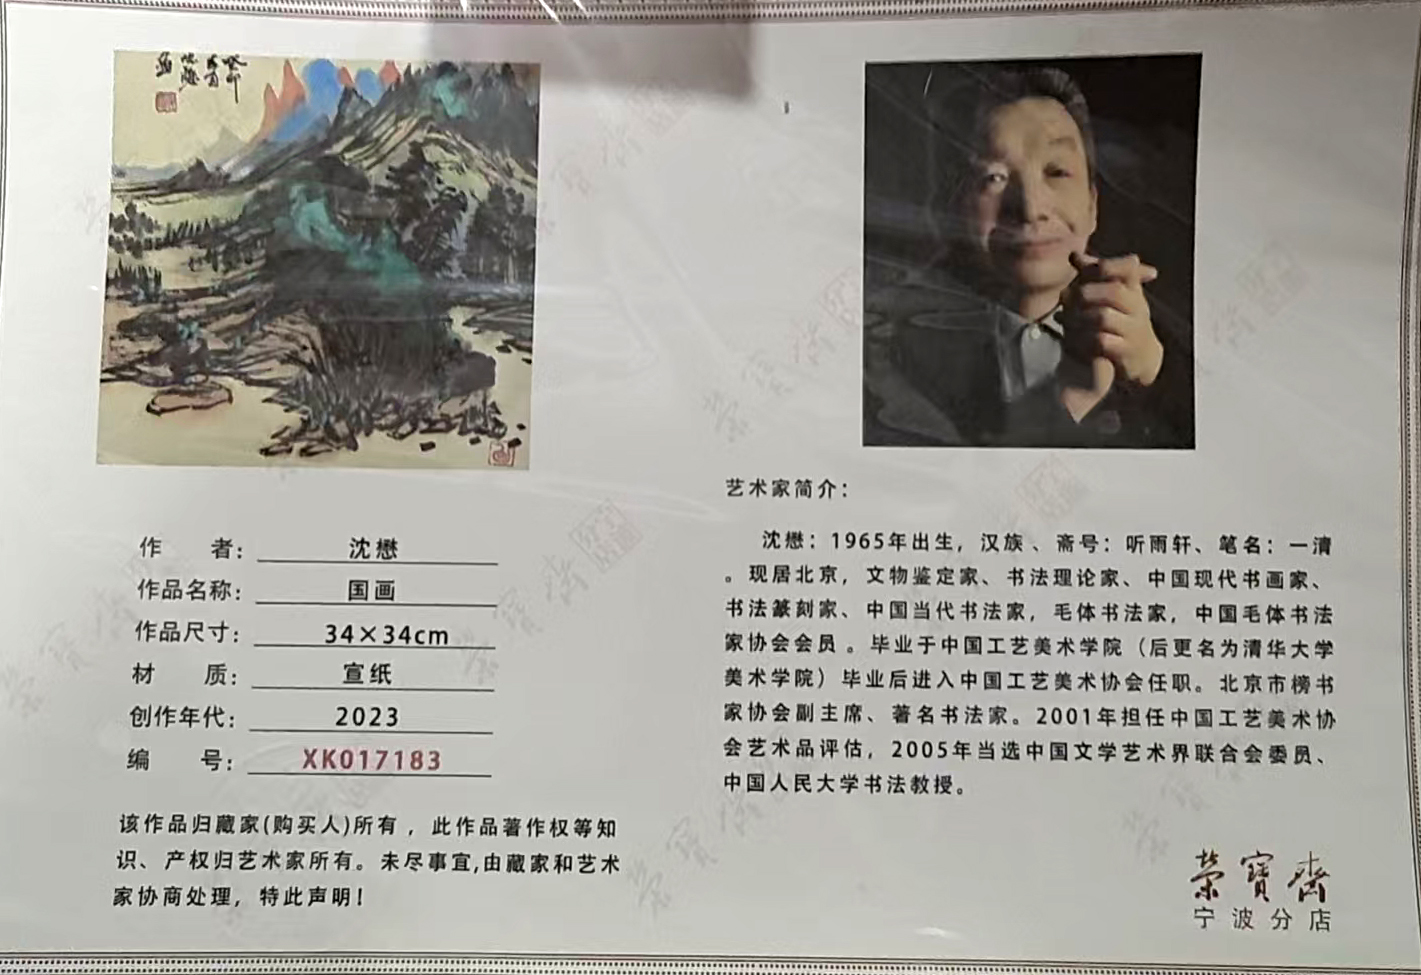 癸卯
沈懋
作 者: 沈懋
作品名称: 国画
作品尺寸: 34×34cm
材 质: 宣纸
创作年代: 2023
编 号: XK017183
该作品归藏家(购买人)所有,此作品著作权等知
识、产权归艺术家所有。未尽事宜,由藏家和艺术
家协商处理,特此声明!
艺术家简介:
沈懋:1965年出生,汉族、斋号:听雨轩、笔名:一清
。现居北京,文物鉴定家、书法理论家、中国现代书画家、
书法篆刻家、中国当代书法家,毛体书法家,中国毛体书法
家协会会员。毕业于中国工艺美术学院(后更名为清华大学
美术学院)毕业后进入中国工艺美术协会任职。北京市榜书
家协会副主席、著名书法家。2001年担任中国工艺美术协
会艺术品评估,2005年当选中国文学艺术界联合会委员、
中国人民大学书法教授。
荣寶齋
宁波分店